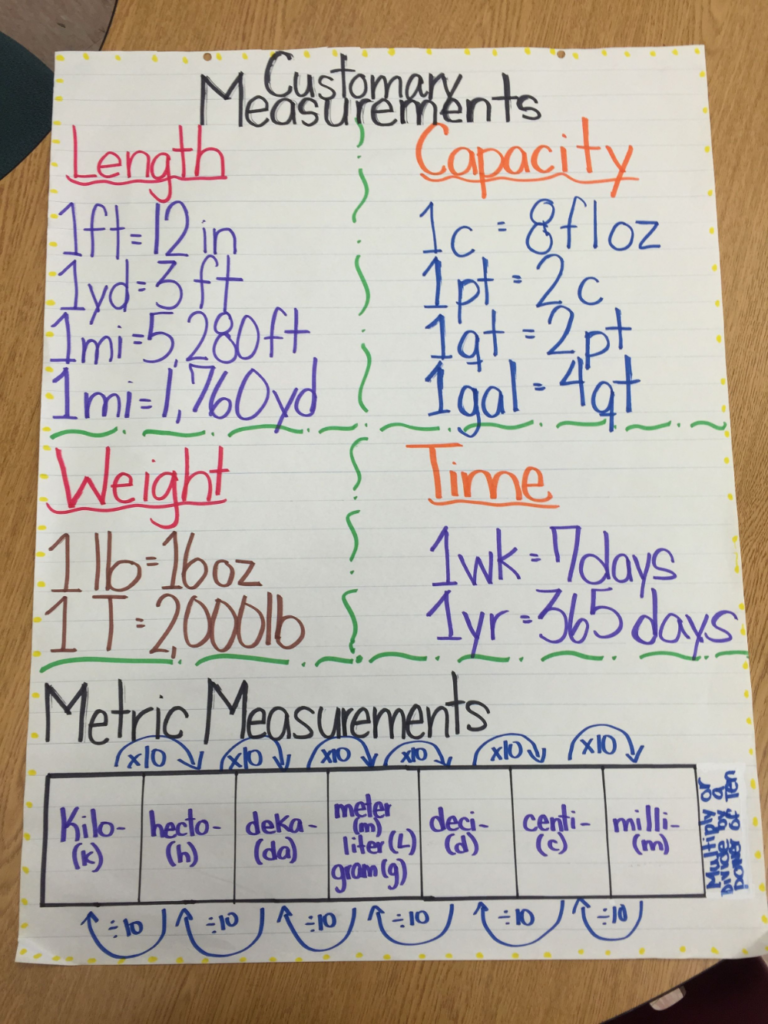 Customary
Measurements
Length
1ft = 12 in
1yd = 3 ft
1mi = 5,280ft
1mi = 1,760yd
Capacity
1c = 8floz
1pt = 2c
1qt = 2pt
1gal = 4qt
Weight
1 lb = 16oz
1 T = 2,000lb
Time
1wk = 7days
1yr = 365 days
Metric Measurements
x10 x10 x10 x10 x10 x10
Kilo-
(k)
hecto-
(h)
deka-
(da)
meter
(m)
liter (L)
gram (g)
deci-
(d)
centi-
(c)
milli-
(m)
÷10 ÷10 ÷10 ÷10 ÷10 ÷10
Multiply or
Divide by a
power of Ten